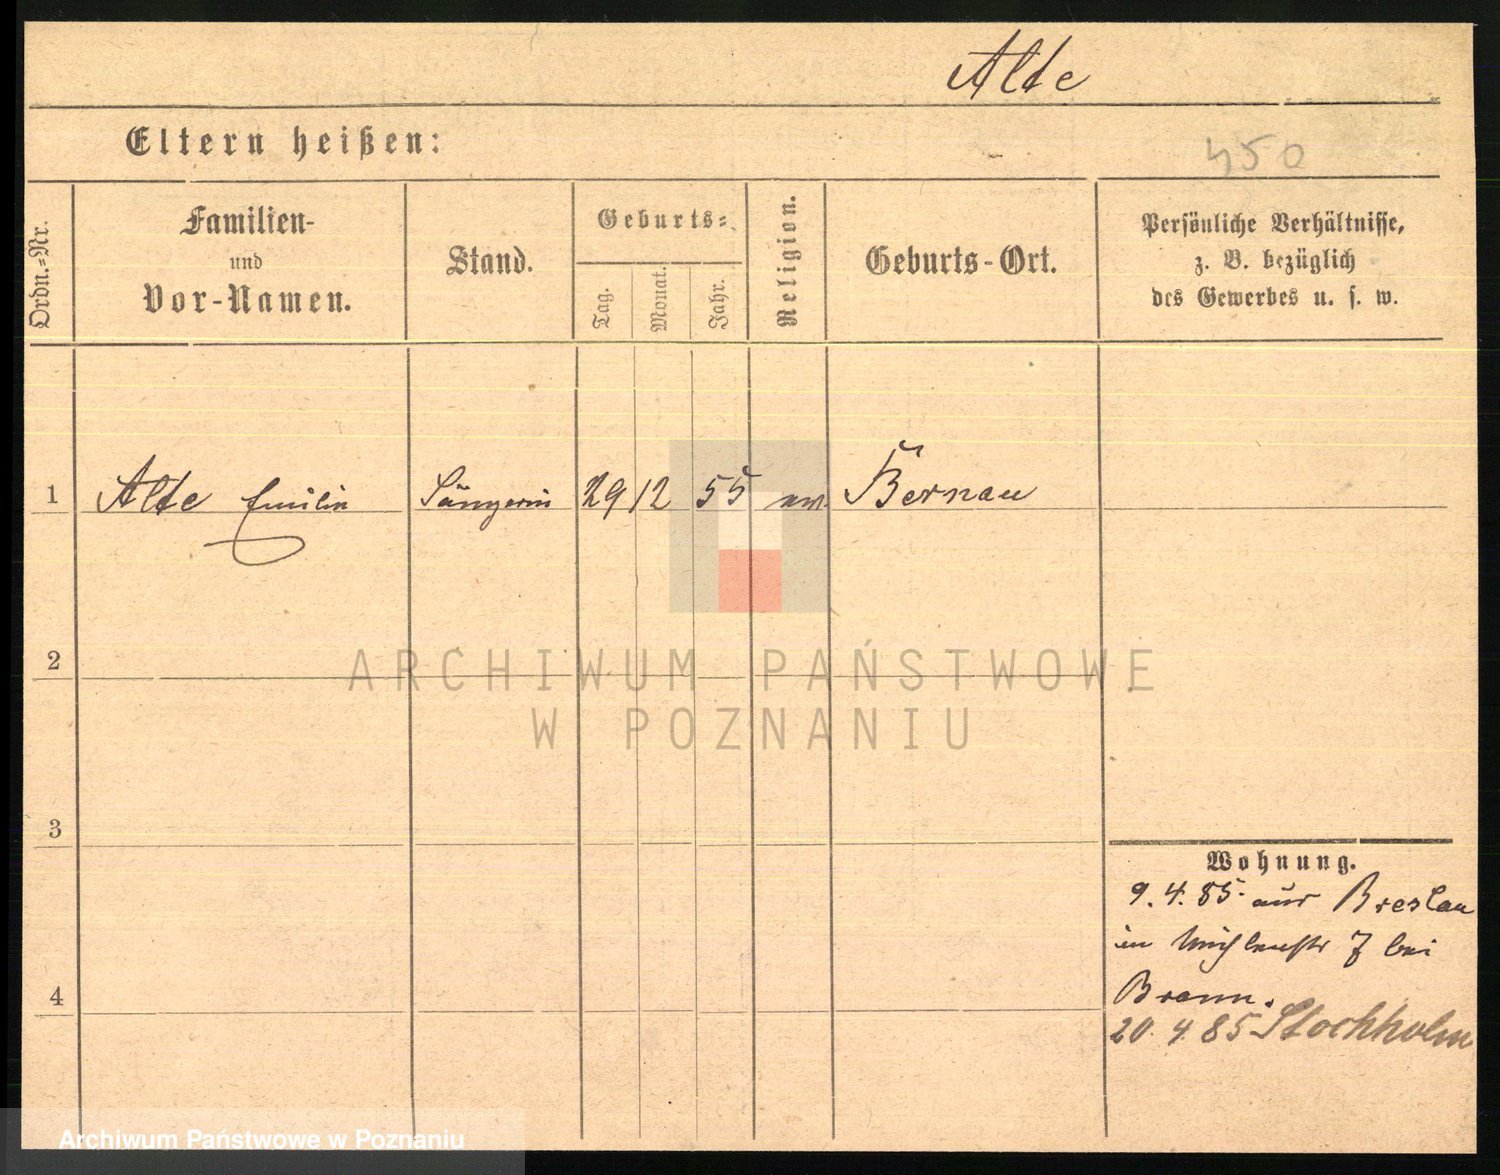 Alde
Eltern heißen:
450
Ordn.=Nr.
Familien-
und
Vor-Namen.
Stand.
Geburts=
Tag.
Monat.
Jahr.
Religion.
Geburts-Ort.
Persönliche Verhältnisse,
z. B. bezüglich
des Gewerbes u. s. w.
1 Alde Emilie Sängerin 29 12 55 ev. Bernau
2
3
4
Wohnung.
9. 4. 85. aus Breslau
in 7 bei
Bromm.
20. 4. 85 Stockholm
ARCHIWUM PAŃSTWOWE
W POZNANIU
Archiwum Państwowe w Poznaniu